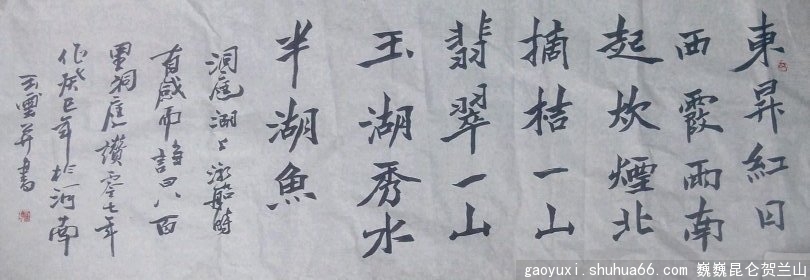 東昇紅日
西霞雨南
起炊煙北
摘桔一山
翡翠一山
玉湖秀水
半湖魚
洞庭湖上船時
有感而詩曰八百
里洞庭讚零七年
作癸巳年於河南
雲并書
gaoyuxi.shuhua66.com 巍巍昆仑贺兰山